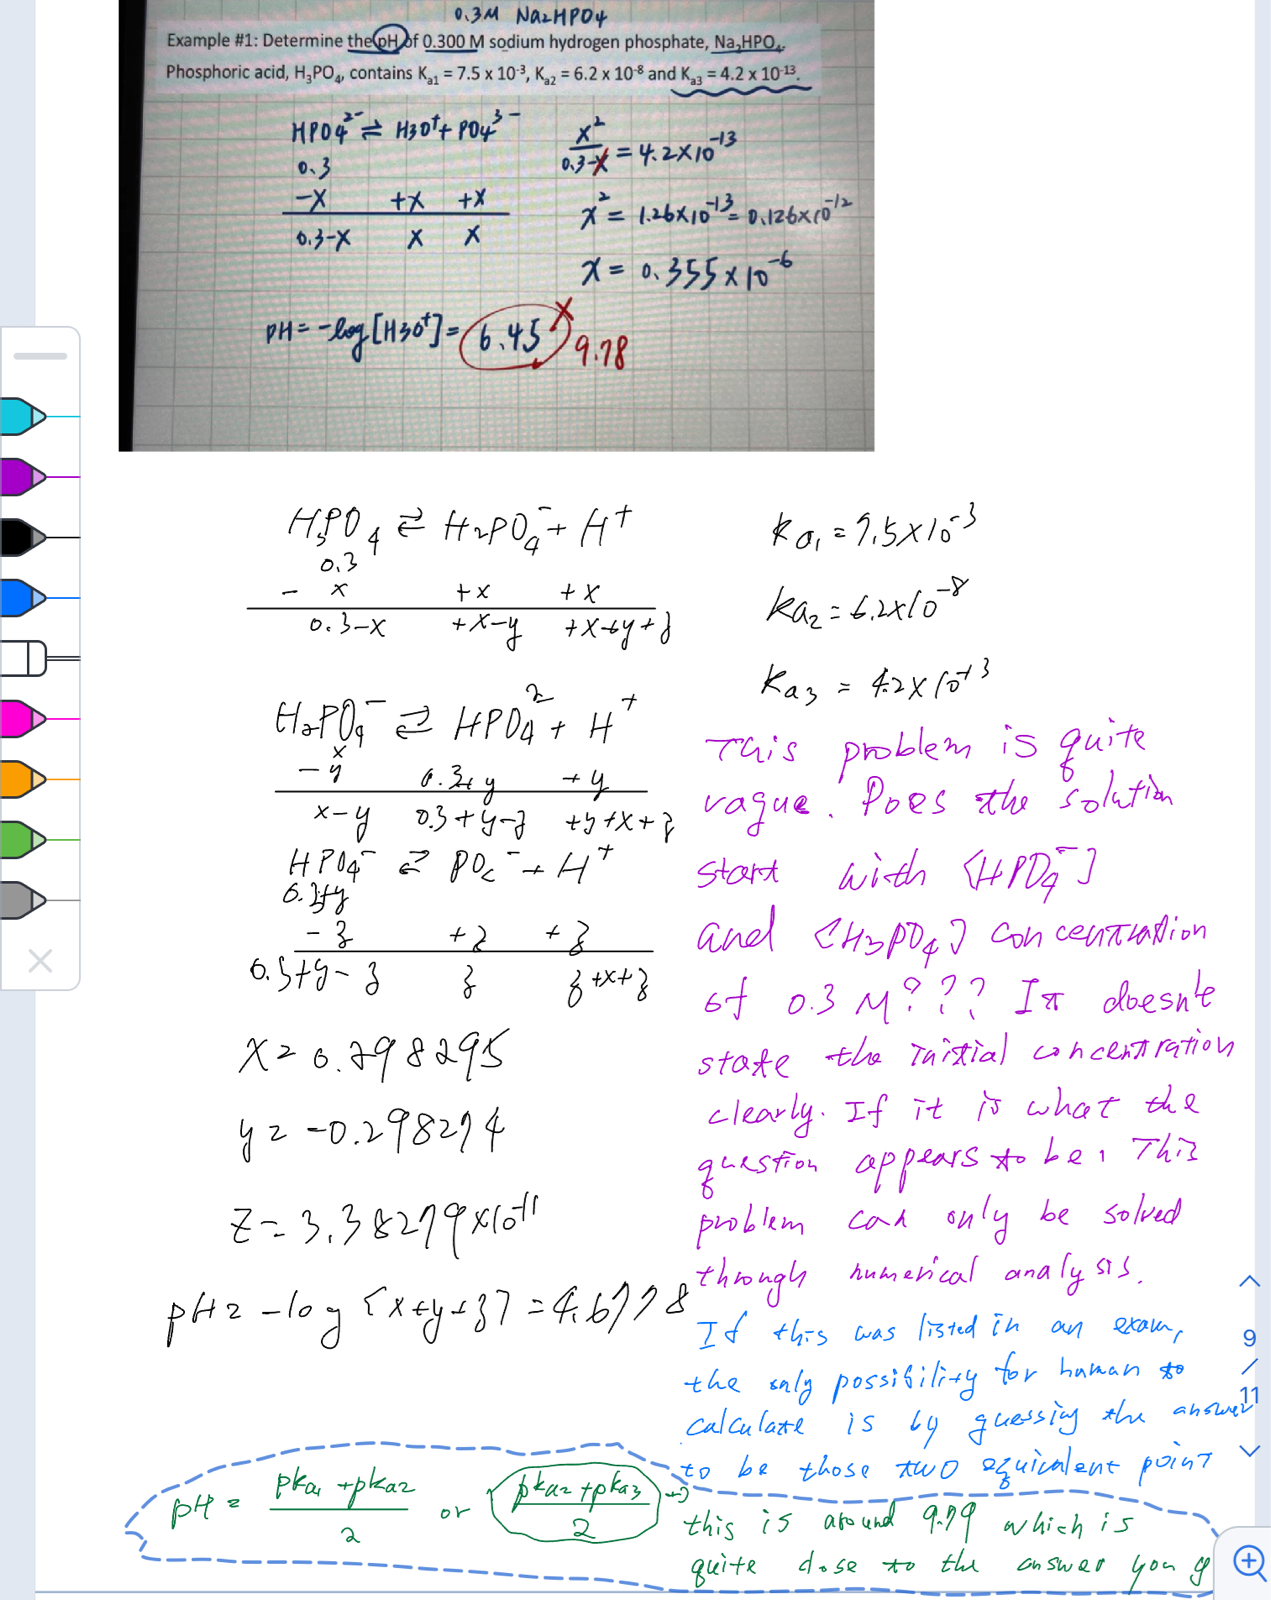 0.3M Na2HPO4
Example #1: Determine the pH of 0.300 M sodium hydrogen phosphate, Na₂HPO₄.
Phosphoric acid, H₃PO₄, contains Kₐ₁ = 7.5 x 10⁻³, Kₐ₂ = 6.2 x 10⁻⁸ and Kₐ₃ = 4.2 x 10⁻¹³.
HPO4²⁻ ⇌ H3O⁺ + PO4³⁻
0.3
-x +x +x
0.3-x x x
x²/0.3-x = 4.2×10⁻¹³
x² = 1.26×10⁻¹³ = 0.126×10⁻¹²
x = 0.355×10⁻⁶
pH = -log[H3O⁺] = 6.45 x
9.78
H3PO4 ⇌ H2PO4⁻ + H⁺
0.3
- x +x +x
0.3-x +x-y +x+y+z
ka1 = 7.5×10⁻³
ka2 = 6.2×10⁻⁸
ka3 = 4.2×10⁻¹³
H2PO4⁻ ⇌ HPO4²⁻ + H⁺
x
-y 0.3+y +y
x-y 0.3+y-z +y+x+z
HPO4⁻ ⇌ PO4⁻ + H⁺
0.3+y
-z +z +z
0.3+y-z z z+x+z
x = 0.298295
y = -0.298274
z = 3.38279×10⁻¹¹
pH = -log[x+y+z] = 4.67778
This problem is quite
vague. Does the solution
start with [HPO4⁻]
and [H3PO4] concentration
of 0.3 M??? It doesn't
state the initial concentration
clearly. If it is what the
question appears to be, This
problem can only be solved
through numerical analysis.
If this was listed in an exam,
the only possibility for human to
calculate is by guessing the answer
to be those two equivalent point
pH = pka1 + pka2 / 2 or pka2 + pka3 / 2 →
this is around 9.79 which is
quite close to the answer you g
9
/
11